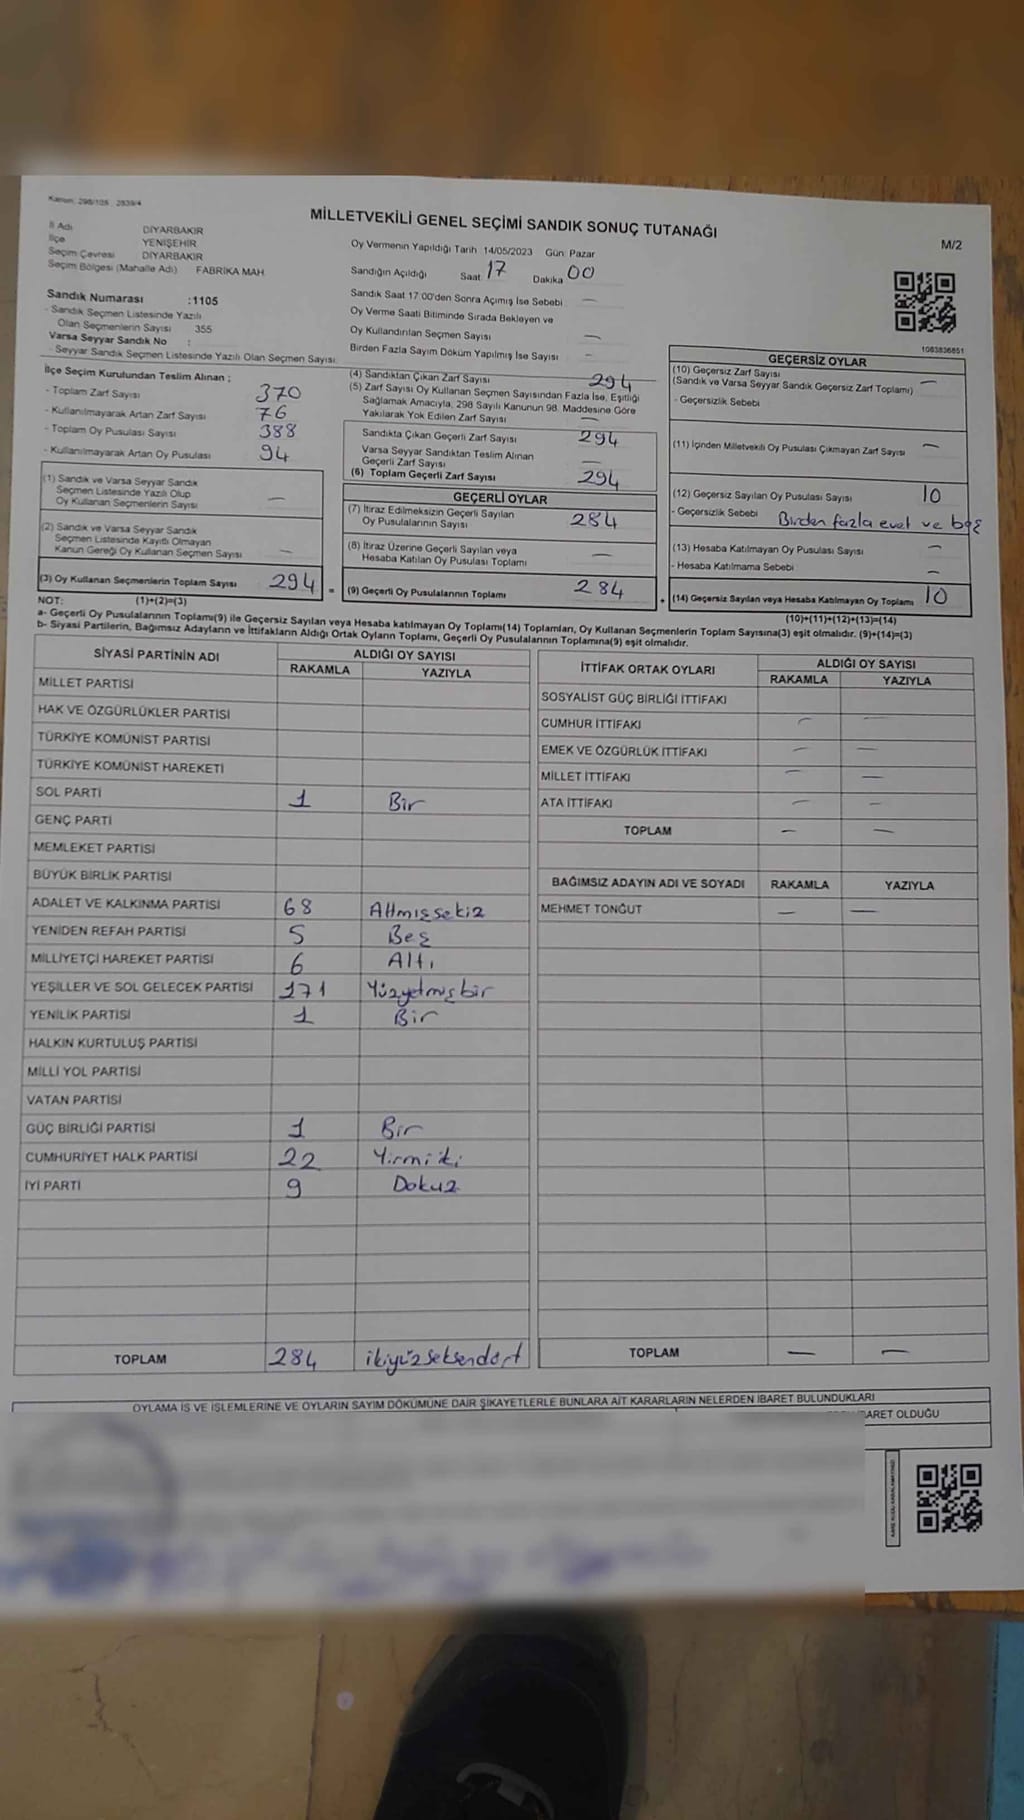 Kanun: 298/105 , 2839/4
MİLLETVEKİLİ GENEL SEÇİMİ SANDIK SONUÇ TUTANAĞI
M/2
İl Adı DİYARBAKIR
İlçe YENİŞEHİR
Seçim Çevresi DİYARBAKIR
Seçim Bölgesi (Mahalle Adı) FABRİKA MAH
Oy Vermenin Yapıldığı Tarih 14/05/2023 Gün: Pazar
Sandığın Açıldığı Saat 17 Dakika 00
Sandık Saat 17:00'den Sonra Açımış İse Sebebi —
Oy Verme Saati Bitiminde Sırada Bekleyen ve
Oy Kullandırılan Seçmen Sayısı —
Birden Fazla Sayım Döküm Yapılmış İse Sayısı —
Sandık Numarası :1105
- Sandık Seçmen Listesinde Yazılı
Olan Seçmenlerin Sayısı 355
Varsa Seyyar Sandık No :
- Seyyar Sandık Seçmen Listesinde Yazılı Olan Seçmen Sayısı:
1083836851
İlçe Seçim Kurulundan Teslim Alınan ;
- Toplam Zarf Sayısı 370
- Kullanılmayarak Artan Zarf Sayısı 76
- Toplam Oy Pusulası Sayısı 388
- Kullanılmayarak Artan Oy Pusulası 94
(1) Sandık ve Varsa Seyyar Sandık
Seçmen Listesinde Yazılı Olup
Oy Kullanan Seçmenlerin Sayısı —
(2) Sandık ve Varsa Seyyar Sandık
Seçmen Listesinde Kayıtlı Olmayan
Kanun Gereği Oy Kullanan Seçmen Sayısı —
(3) Oy Kullanan Seçmenlerin Toplam Sayısı 294 =
(4) Sandıktan Çıkan Zarf Sayısı 294
(5) Zarf Sayısı Oy Kullanan Seçmen Sayısından Fazla İse, Eşitliği
Sağlamak Amacıyla, 298 Sayılı Kanunun 98. Maddesine Göre
Yakılarak Yok Edilen Zarf Sayısı —
Sandıkta Çıkan Geçerli Zarf Sayısı 294
Varsa Seyyar Sandıktan Teslim Alınan
Geçerli Zarf Sayısı —
(6) Toplam Geçerli Zarf Sayısı 294
GEÇERLİ OYLAR
(7) İtiraz Edilmeksizin Geçerli Sayılan
Oy Pusulalarının Sayısı 284
(8) İtiraz Üzerine Geçerli Sayılan veya
Hesaba Katılan Oy Pusulası Toplamı —
(9) Geçerli Oy Pusulalarının Toplamı 284 +
GEÇERSİZ OYLAR
(10) Geçersiz Zarf Sayısı —
(Sandık ve Varsa Seyyar Sandık Geçersiz Zarf Toplamı)
- Geçersizlik Sebebi
(11) İçinden Milletvekili Oy Pusulası Çıkmayan Zarf Sayısı —
(12) Geçersiz Sayılan Oy Pusulası Sayısı 10
- Geçersizlik Sebebi Birden fazla evet ve boş
(13) Hesaba Katılmayan Oy Pusulası Sayısı —
- Hesaba Katılmama Sebebi —
(14) Geçersiz Sayılan veya Hesaba Katılmayan Oy Toplamı 10
NOT: (1)+(2)=(3) (10)+(11)+(12)+(13)=(14)
a- Geçerli Oy Pusulalarının Toplamı(9) ile Geçersiz Sayılan veya Hesaba katılmayan Oy Toplamı(14) Toplamları, Oy Kullanan Seçmenlerin Toplam Sayısına(3) eşit olmalıdır. (9)+(14)=(3)
b- Siyasi Partilerin, Bağımsız Adayların ve İttifakların Aldığı Ortak Oyların Toplamı, Geçerli Oy Pusulalarının Toplamına(9) eşit olmalıdır.
SİYASİ PARTİNİN ADI ALDIĞI OY SAYISI
RAKAMLA YAZIYLA
MİLLET PARTİSİ
HAK VE ÖZGÜRLÜKLER PARTİSİ
TÜRKİYE KOMÜNİST PARTİSİ
TÜRKİYE KOMÜNİST HAREKETİ
SOL PARTİ 1 Bir
GENÇ PARTİ
MEMLEKET PARTİSİ
BÜYÜK BİRLİK PARTİSİ
ADALET VE KALKINMA PARTİSİ 68 Altmışsekiz
YENİDEN REFAH PARTİSİ 5 Beş
MİLLİYETÇİ HAREKET PARTİSİ 6 Altı
YEŞİLLER VE SOL GELECEK PARTİSİ 171 Yüzyetmişbir
YENİLİK PARTİSİ 1 Bir
HALKIN KURTULUŞ PARTİSİ
MİLLİ YOL PARTİSİ
VATAN PARTİSİ
GÜÇ BİRLİĞİ PARTİSİ 1 Bir
CUMHURİYET HALK PARTİSİ 22 Yirmi iki
İYİ PARTİ 9 Dokuz
TOPLAM 284 ikiyüzseksendört
İTTİFAK ORTAK OYLARI ALDIĞI OY SAYISI
RAKAMLA YAZIYLA
SOSYALİST GÜÇ BİRLİĞİ İTTİFAKI
CUMHUR İTTİFAKI — —
EMEK VE ÖZGÜRLÜK İTTİFAKI — —
MİLLET İTTİFAKI — —
ATA İTTİFAKI — —
TOPLAM — —
BAĞIMSIZ ADAYIN ADI VE SOYADI RAKAMLA YAZIYLA
MEHMET TONĞUT — —
TOPLAM — —
OYLAMA İŞ VE İŞLEMLERİNE VE OYLARIN SAYIM DÖKÜMÜNE DAİR ŞİKAYETLERLE BUNLARA AİT KARARLARIN NELERDEN İBARET BULUNDUKLARI
İBARET OLDUĞU